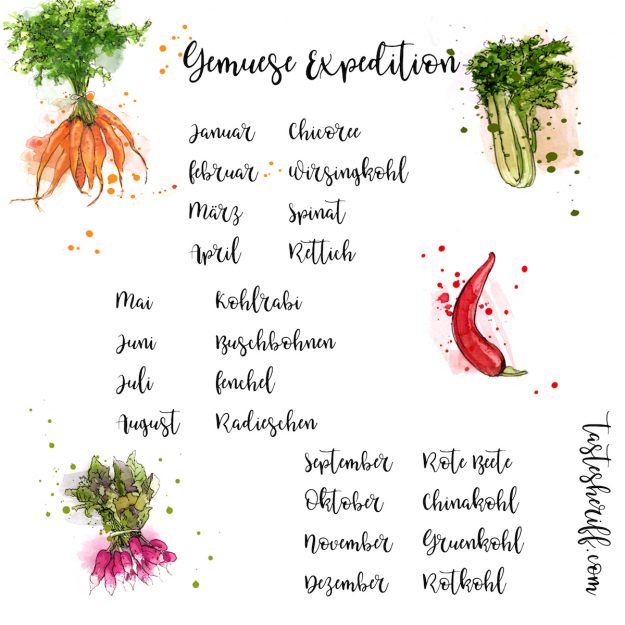 Gemuese Expedition
Januar Chicoree
Februar Wirsingkohl
März Spinat
April Rettich
Mai Kohlrabi
Juni Buschbohnen
Juli Fenchel
August Radieschen
September Rote Beete
Oktober Chinakohl
November Gruenkohl
Dezember Rotkohl
tastesheriff.com